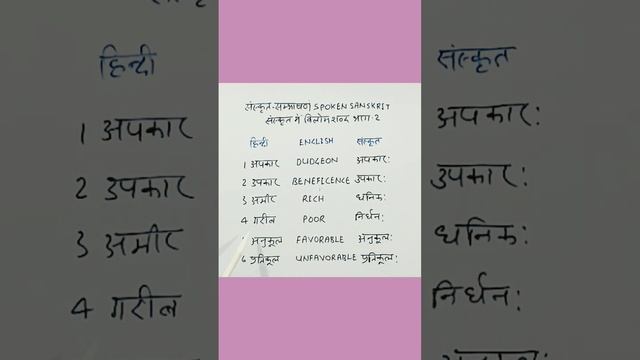 संस्कृत-सम्भाषण SPOKEN SANSKRIT
संस्कृत में विलोम शब्द भाग-2
हिन्दी ENGLISH संस्कृत
1 अपकार DUDGEON अपकार:
2 उपकार BENEFICENCE उपकार:
3 अमीर RICH धनिक:
4 गरीब POOR निर्धन:
अनुकूल FAVORABLE अनुकूल:
6 प्रतिकूल UNFAVORABLE प्रतिकूल:
हिन्दी संस्कृत
1 अपकार अपकार:
2 उपकार उपकार:
3 अमीर धनिक:
4 गरीब निर्धन: